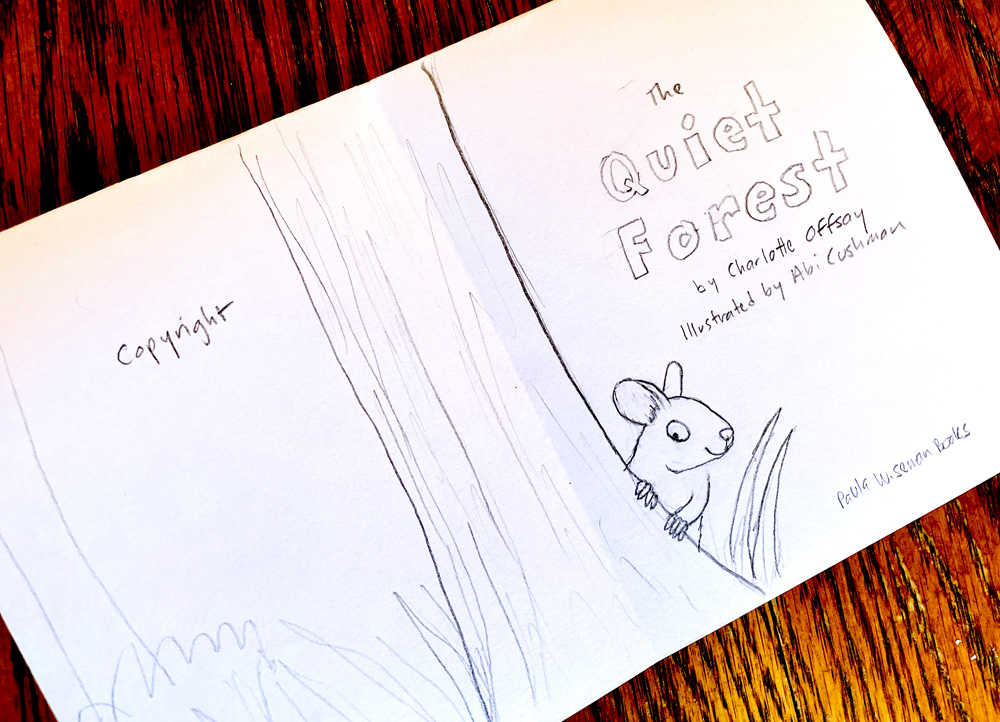 Copyright
The
Quiet
Forest
by Charlotte Offsay
Illustrated by Abi Cushman
Paula Wiseman Books